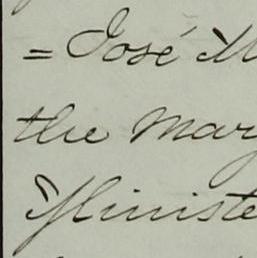 = José M
the Mar
Ministe